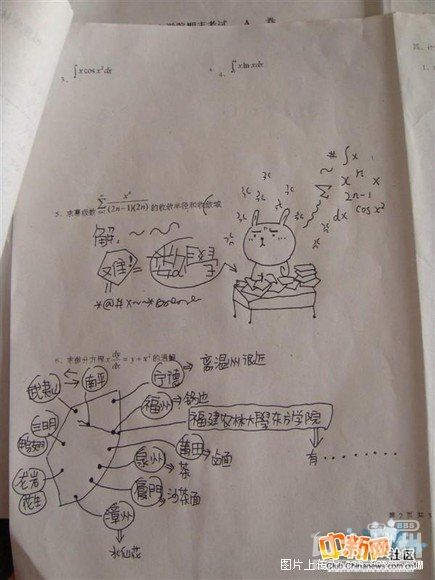 学院期末考试 A 卷
3、∫x cos x² dx
4、∫₁ᵉ x ln x dx
5、求幂级数 ∑ xⁿ/(2n-1)(2n) 的收敛半径和收敛域
解:
# ∫ x
∑ x n x
2n-1
dx cos x²
难!
6、求微分方程 x dy/dx = y + x² 的通解
武夷山
南平
宁德
离温州很近
福州
三明
福建农林大學东方学院
莆田
卤面
有........
泉州
茶
龙岩
花生
厦門
沙茶面
漳州
水仙花
第 2 页 共 3
BBS
中新网社区
Club.Chinanews.com
图片上传